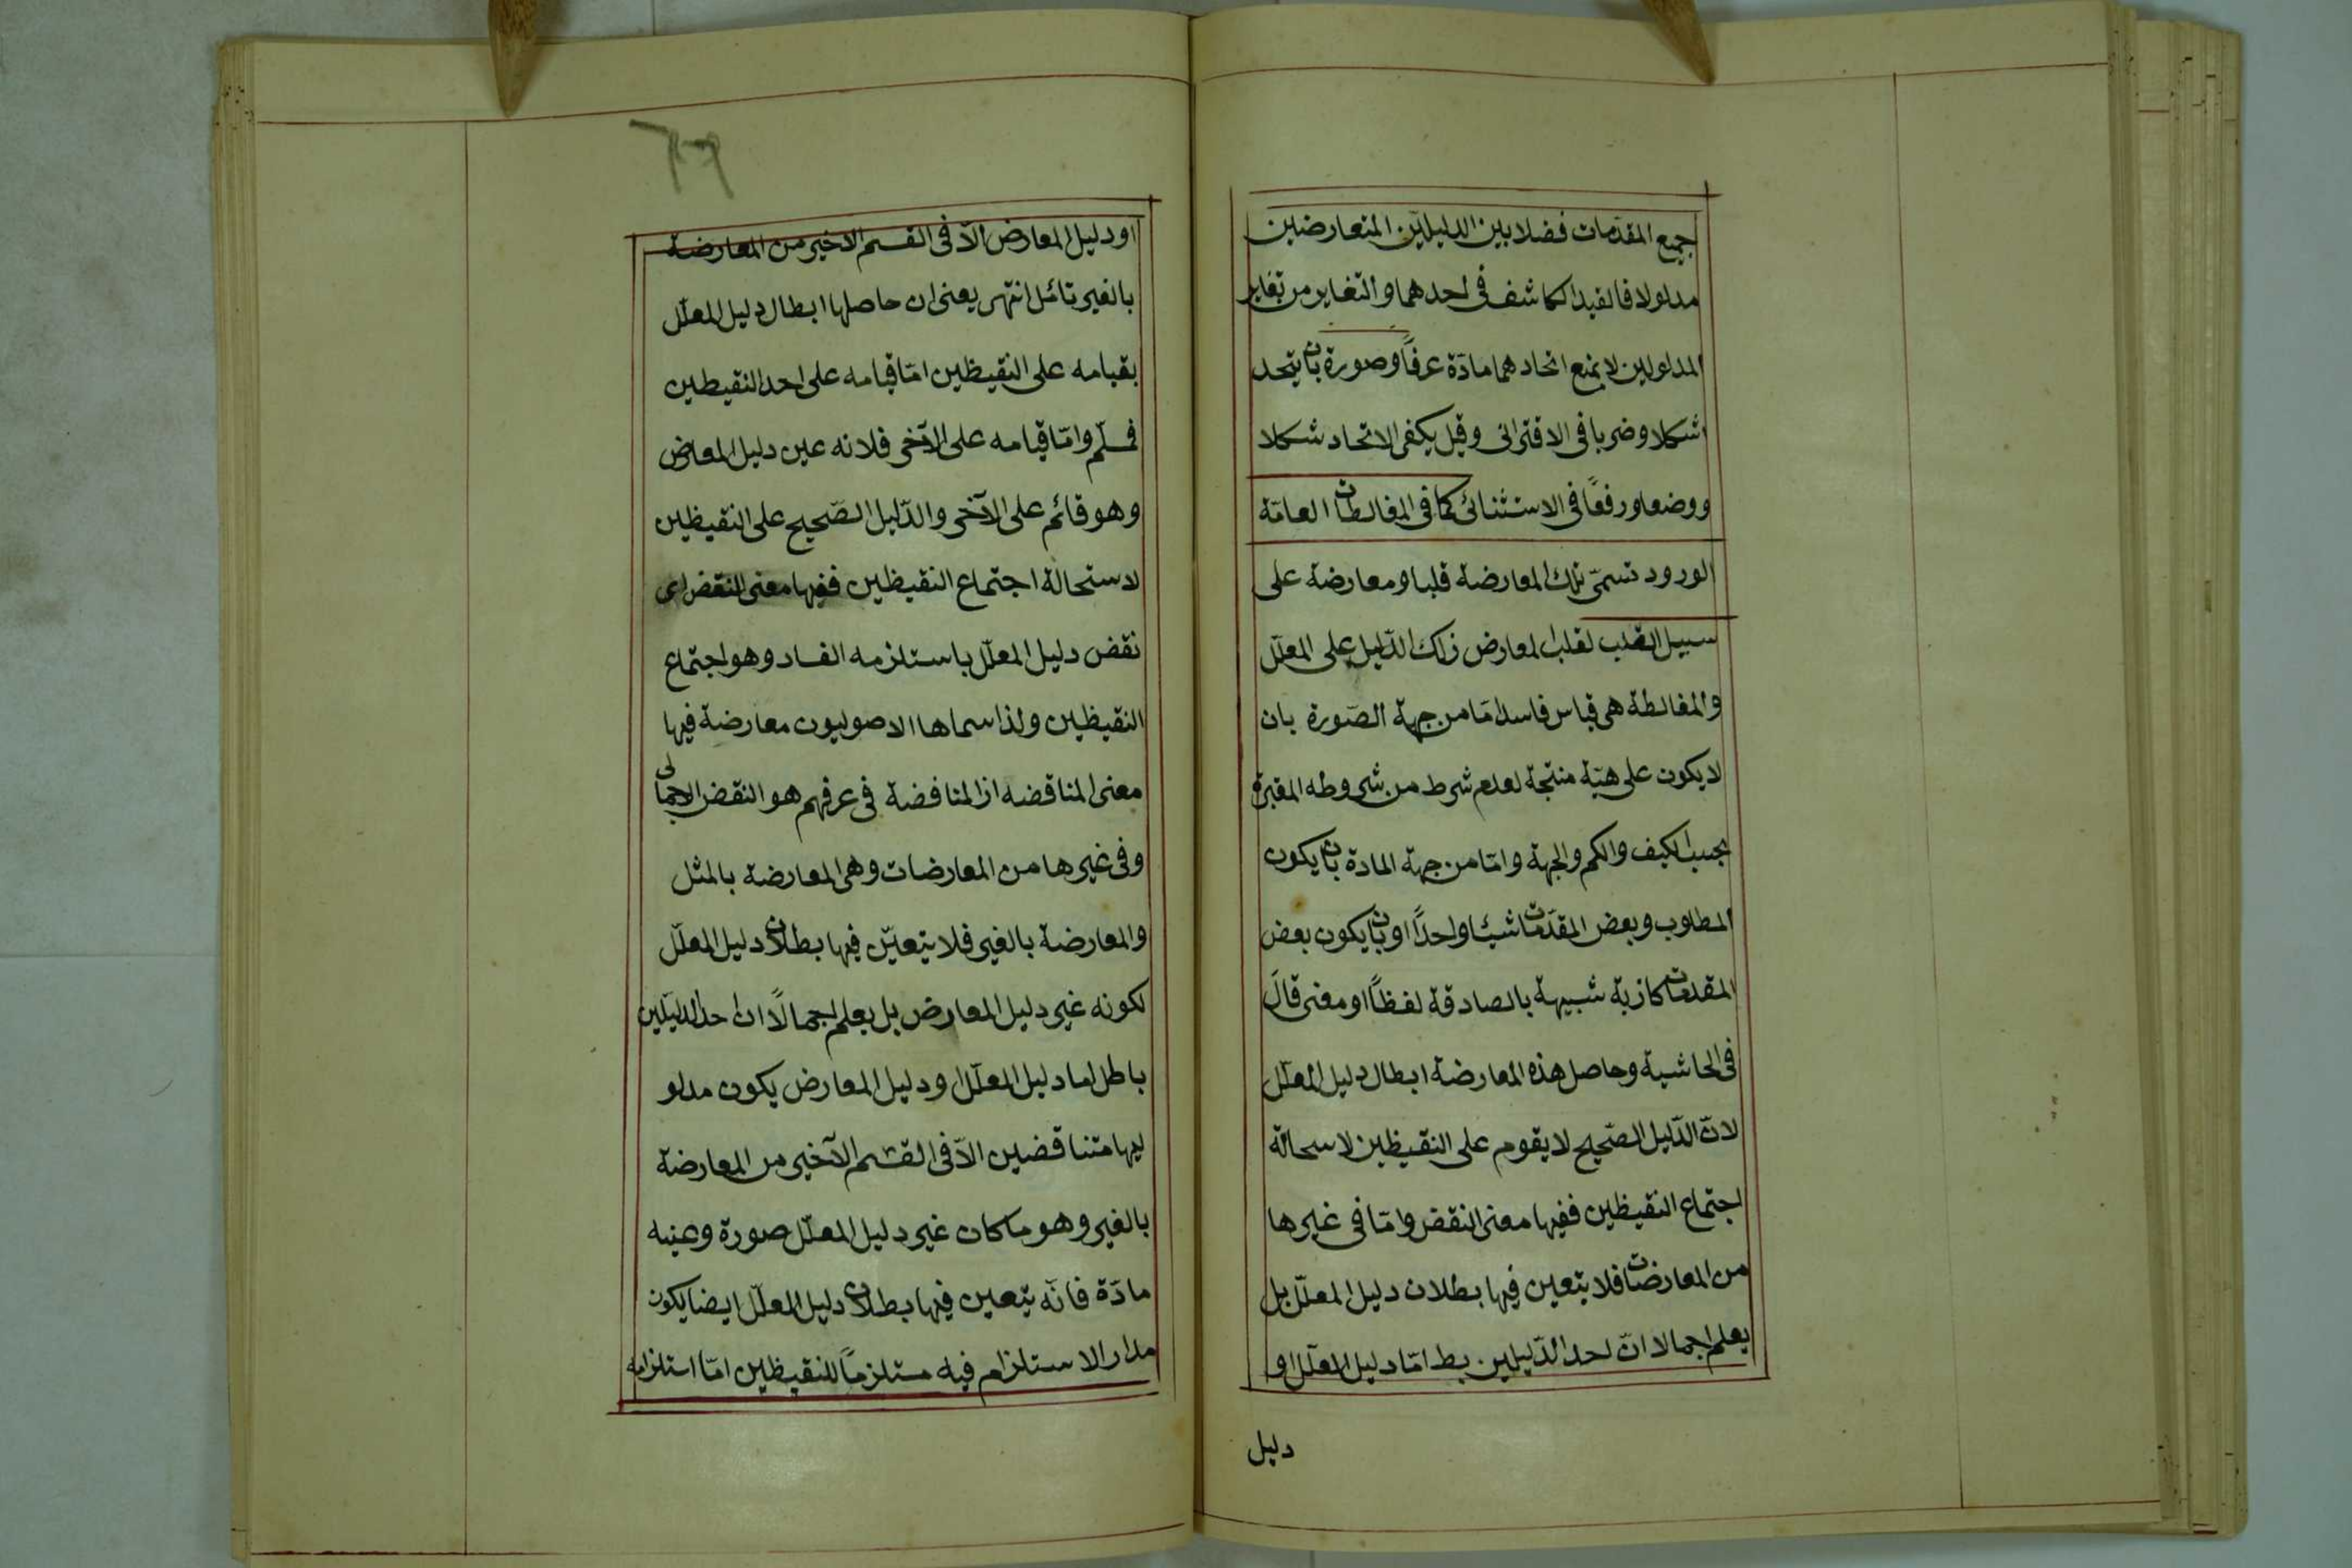 جميع المقدمات فضلا بين الدليلين المتعارضين
مدلولا فالقيد الكاشف في احدهما والتغاير من تغاير
المدلولين لا يمنع اتحادهما مادّة عرفاً وصورة بان يتحد
شكلا وضربا في الاقتراني وقيل يكفي الاتحاد شكلا
ووضعا ورفعًا في الاستثنائي كما في المغالطات العامّة
الورود تسمّى تلك المعارضة قلبا ومعارضة على
سبيل القلب لقلب المعارض ذلك الدّليل على المعلّل
والمغالطة هى قياس فاسد امّا من جهة الصّورة بان
لا يكون على هيّة منتجة لعدم شرط من شروطه المعتبرة
بحسب الكيف والكم والجهة وامّا من جهة المادة بان يكون
المطلوب وبعض المقدّمات شيئا واحدًا او بان يكون بعض
المقدمات كاذبة شبيهة بالصادقة لفظاً او معنى قالَ
في الحاشية وحاصل هذه المعارضة ابطال دليل المعلّل
لانّ الدّليل الصّحيح لا يقوم على النقيظين لاسحالة
اجتماع النقيظين ففيها معنى النقض وامّا في غيرها
من المعارضات فلا يتعين فيها بطلان دليل المعلّل بل
يعلم اجمالا انّ احد الدّليلين بط امّا دليل المعلّل او
دليل
او دليل المعارض الّا في القسم الاخير من المعارضة
بالغير تائمل انتهى يعنى ان حاصلها ابطال دليل المعلّل
بقيامه على النقيظين امّا قيامه على احد النقيظين
فمسلّم وامّا قيامه على الآخر فلانه عين دليل المعارض
وهو قائم على الآخر والدّليل الصّحيح على النقيظين
لاستحالة اجتماع النقيظين ففيها معنى النقض اى
نقض دليل المعلّل باستلزمه الفساد وهو اجتماع
النقيظين ولذا سماها الاصوليون معارضة فيها
معنى المناقضه اذ المناقضة في عرفهم هو النقض الاجمالى
وفي غيرها من المعارضات وهى المعارضة بالمثل
والمعارضة بالغير فلا يتعيّن فيها بطلان دليل المعلّل
لكونه غير دليل المعارض بل يعلم اجمالًا ان احد الدليلين
باطل اما دليل المعلّل او دليل المعارض يكون مدلو
ليهما متناقضين الّا في القسم الآخير من المعارضة
بالغير وهو ما كان غير دليل المعلّل صورة وعينه
مادّة فانّه يتعين فيها بطلان دليل المعلّل ايضا يكون
مدار الاستلزام فيه مستلزماً للنقيظين امّا استلزامه